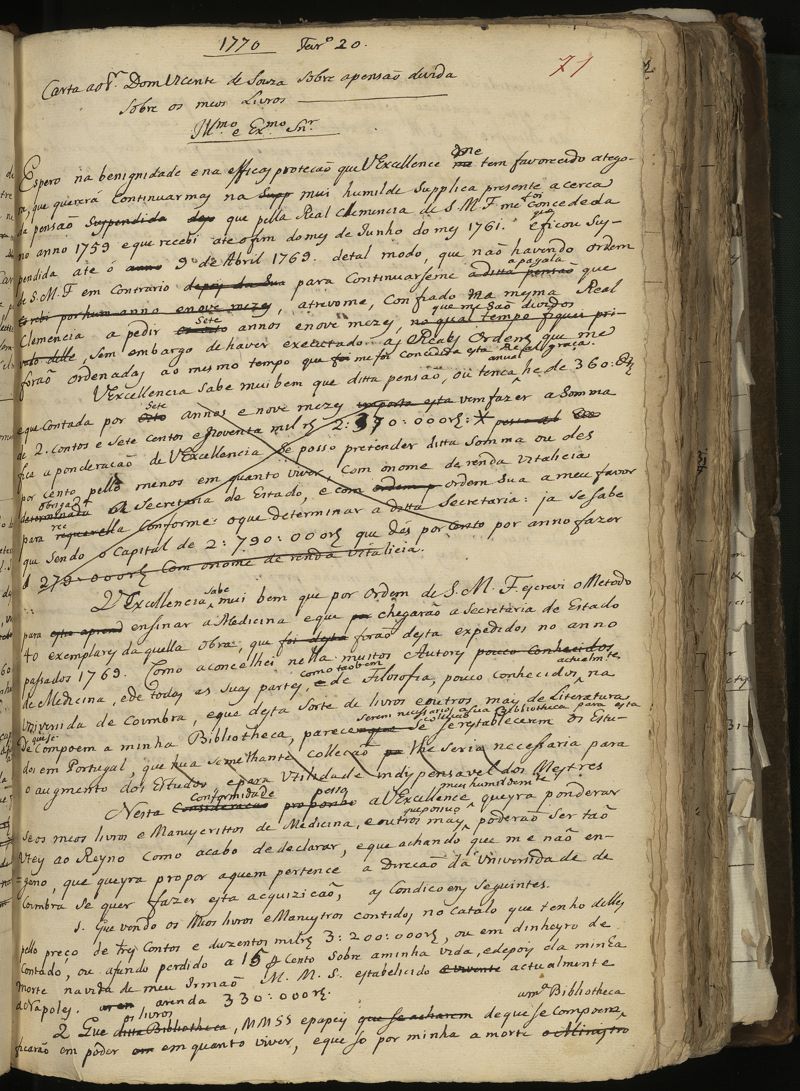 1770 Fevr.º 20.
71
Carta ao Sr. Dom Vicente de Souza sobre apensão devida
sobre os meus Livros
Ill.mo e Ex.mo Snr.
Espero na benignidade e na efficas proteção que VExcellence me tem favorecido atego-
ra, que quererá Continuarmas na Supp mui humilde Supplica presente acerca
da pensão Suspendida dejo que pella Real Clemencia de S. M. F me foi Concedida
no anno 1759 e que recebi ate o fim do mes de Junho do mes 1761. e ficou Sus-
pendida até ó anno 9 de Abril 1769. detal modo, que não havendo ordem
de S.M.F em Contrario depoy da Sua para Continuarseme apagala aditta pensão que
recebi por hum anno e nove mezes, atrevome, Confiado na mesma Real
Clemencia a pedir Sete annos e nove mezes, que me são devidos no qual tempo fiquei pri-
vado delle, sem embargo de haver executado as Reaes Ordens que me
forão ordenadas ao mesmo tempo que foi me foi concedida esta Real graça.
VExcellencia Sabe mui bem que ditta pensão, ou tença annual he de 360:
e que Contada por Sete Oito annos e nove mezes importa esta vem fazer a Somma
de 2. Contos e Sete Centos e Noventa mil rs 2:790:000rs: X
fica a ponderacão de VExcellencia Se posso pretender ditta Somma ou des
por Cento pello menos em quanto viver, Com ónome de renda Vitalicia
determinada obrigada a Secretaria de Estado, e com ordem p ordem Sua a meu favor
para requerella Conforme: o que determinar a ditta Secretaria: ja se sabe
que Sendo o Capital de 2:790:000rs que dés por Cento por anno fazer
d 279:000rs Com o nome de renda Vitalicia.
VExcellencia Sabe mui bem que por Ordem de S. M. F. escrevi o Metodo
para esta aprend ensinar a Medicina e que pa chegarão a Secretaria de Estado
40 exemplares daquella obra, que foi desta forão desta expedidos no anno
passados 1769. Como aconcelhei nella muitos Autores pouco Conhecidos
de Medicina, e de todas as Suas partes, como tãobem e de Filosofia, pouco conhecidos actualm.te na
Universida de Coimbra, e que desta Sorte de livros e outros mais de Literatura
De Compoem a minha Bibliotheca, parece que serem necessarios a sua Bibliotheca para esta se se restablecerem os Estu-
dos em Portugal, que hua semelhante Collecção pa lhe seria necessaria para
o augmento dos Estudos e para Utilidade indispensavel dos Mestres
Nesta Conformidade Consideracao posso proponho a VExcellence meus humildem.te queyra ponderar
Se os meos livros e Manuscrittos de Medicina, e outros mais que possuo, poderão Ser taõ
Uteis ao Reyno Como acabo de declarar, e que achando que me não en-
gano, que queyra propor aquem pertence a Direcão da Universidade de
Coimbra Se quer fazer esta acquizicão, as Condicoens Seguintes.
1. Que vendo os Meos livros e Manuscritos contidos no Catalo que tenho delles
pello preço de tres Contos e duzentos mil rs 3:200:000rs, ou em dinheyro de
Contado, ou afundo perdido a 15 p Cento Sobre aminha vida, e depois da minha
morte na vida de meu Irmaõ M. M. S. estabelicido e vivente actualmente
a Napoles. aren arenda 330:000rs.
2 Que os livros ditta Bibliotheca, MMSS e papeis que se acharem de que se Compoem a m.ª Bibliotheca
ficarão em poder em em quanto viver, e que só por minha a morte o Ministro